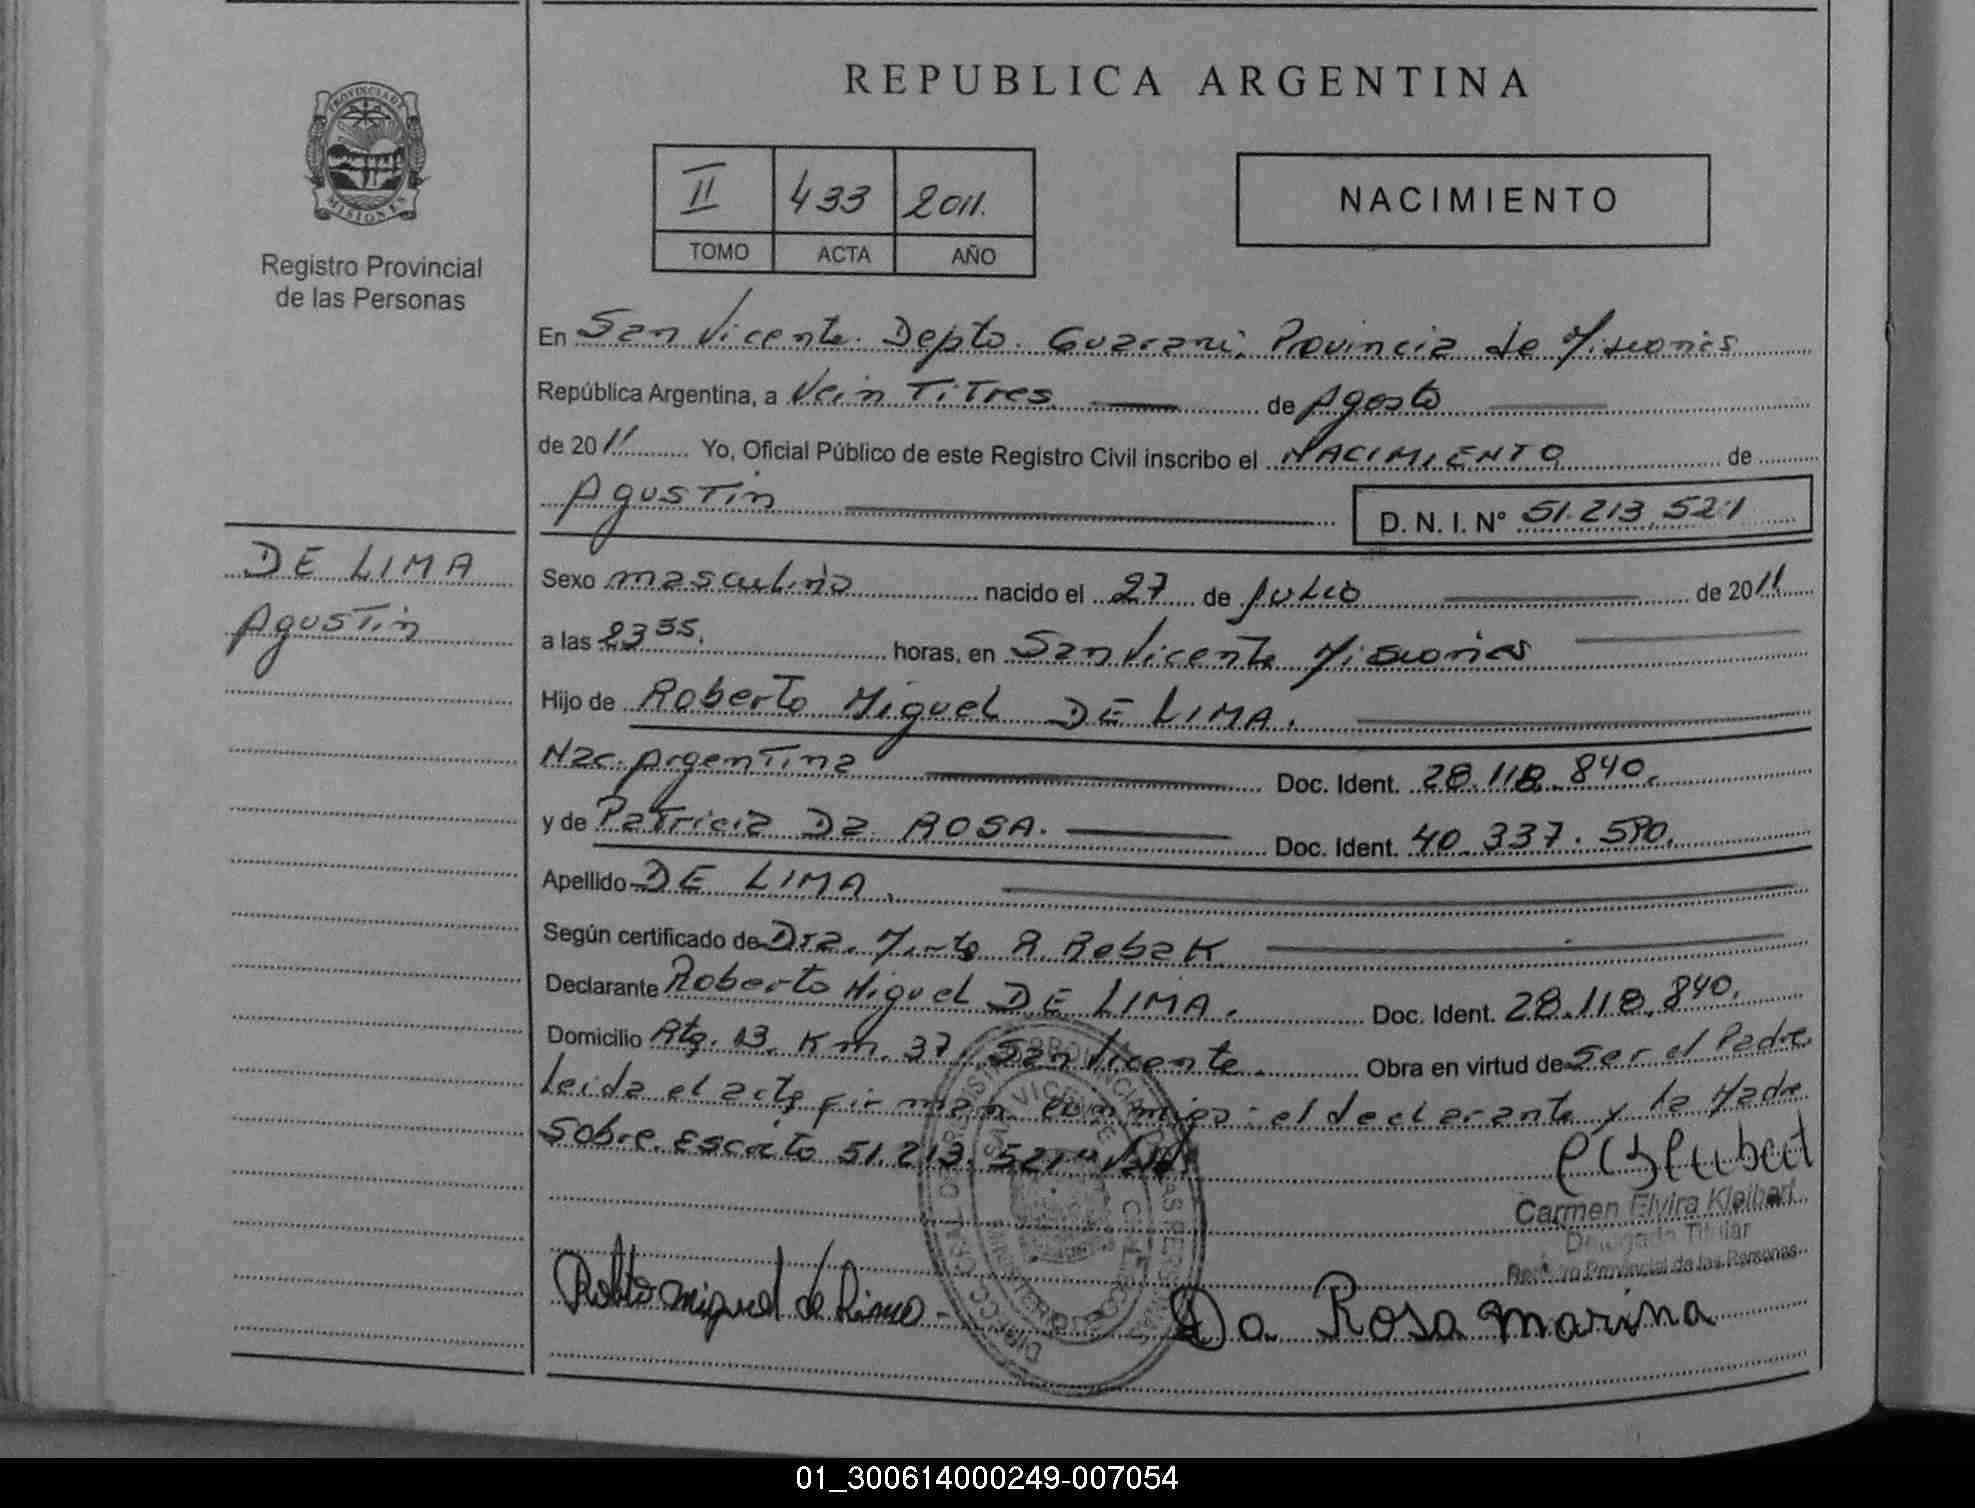 REPUBLICA ARGENTINA
PROVINCIA DE
MISIONES
Registro Provincial
de las Personas
II 433 2011.
TOMO ACTA AÑO
NACIMIENTO
En San Vicente. Depto. Guarani, Provincia de Misiones
República Argentina, a VeinTiTres de Agosto
de 2011 Yo, Oficial Público de este Registro Civil inscribo el NACIMIENTO de
AgusTin D. N. I. Nº 51.213.521
DE LIMA
AgusTin
Sexo masculino nacido el 27 de Julio de 2011
a las 23 55. horas, en San Vicente Misiones
Hijo de Roberto Miguel DE LIMA.
Nac. ArgenTina Doc. Ident. 28.118.840.
y de Patricia Da ROSA. Doc. Ident. 40.337.590.
Apellido DE LIMA.
Según certificado de Dra. R. Rebak
Declarante Roberto Miguel DE LIMA. Doc. Ident. 28.118.840.
Domicilio Rta. 13. Km. 37. San Vicente. Obra en virtud de Ser el Padre
Leida el acta firman conmigo: el declarante y la Madre
Sobre Escrito 51.213.521
Carmen Elvira Kleibert
Delegada Titular
Registro Provincial de las Personas
Roberto miguel de Lima
Da Rosa marina
01_300614000249-007054